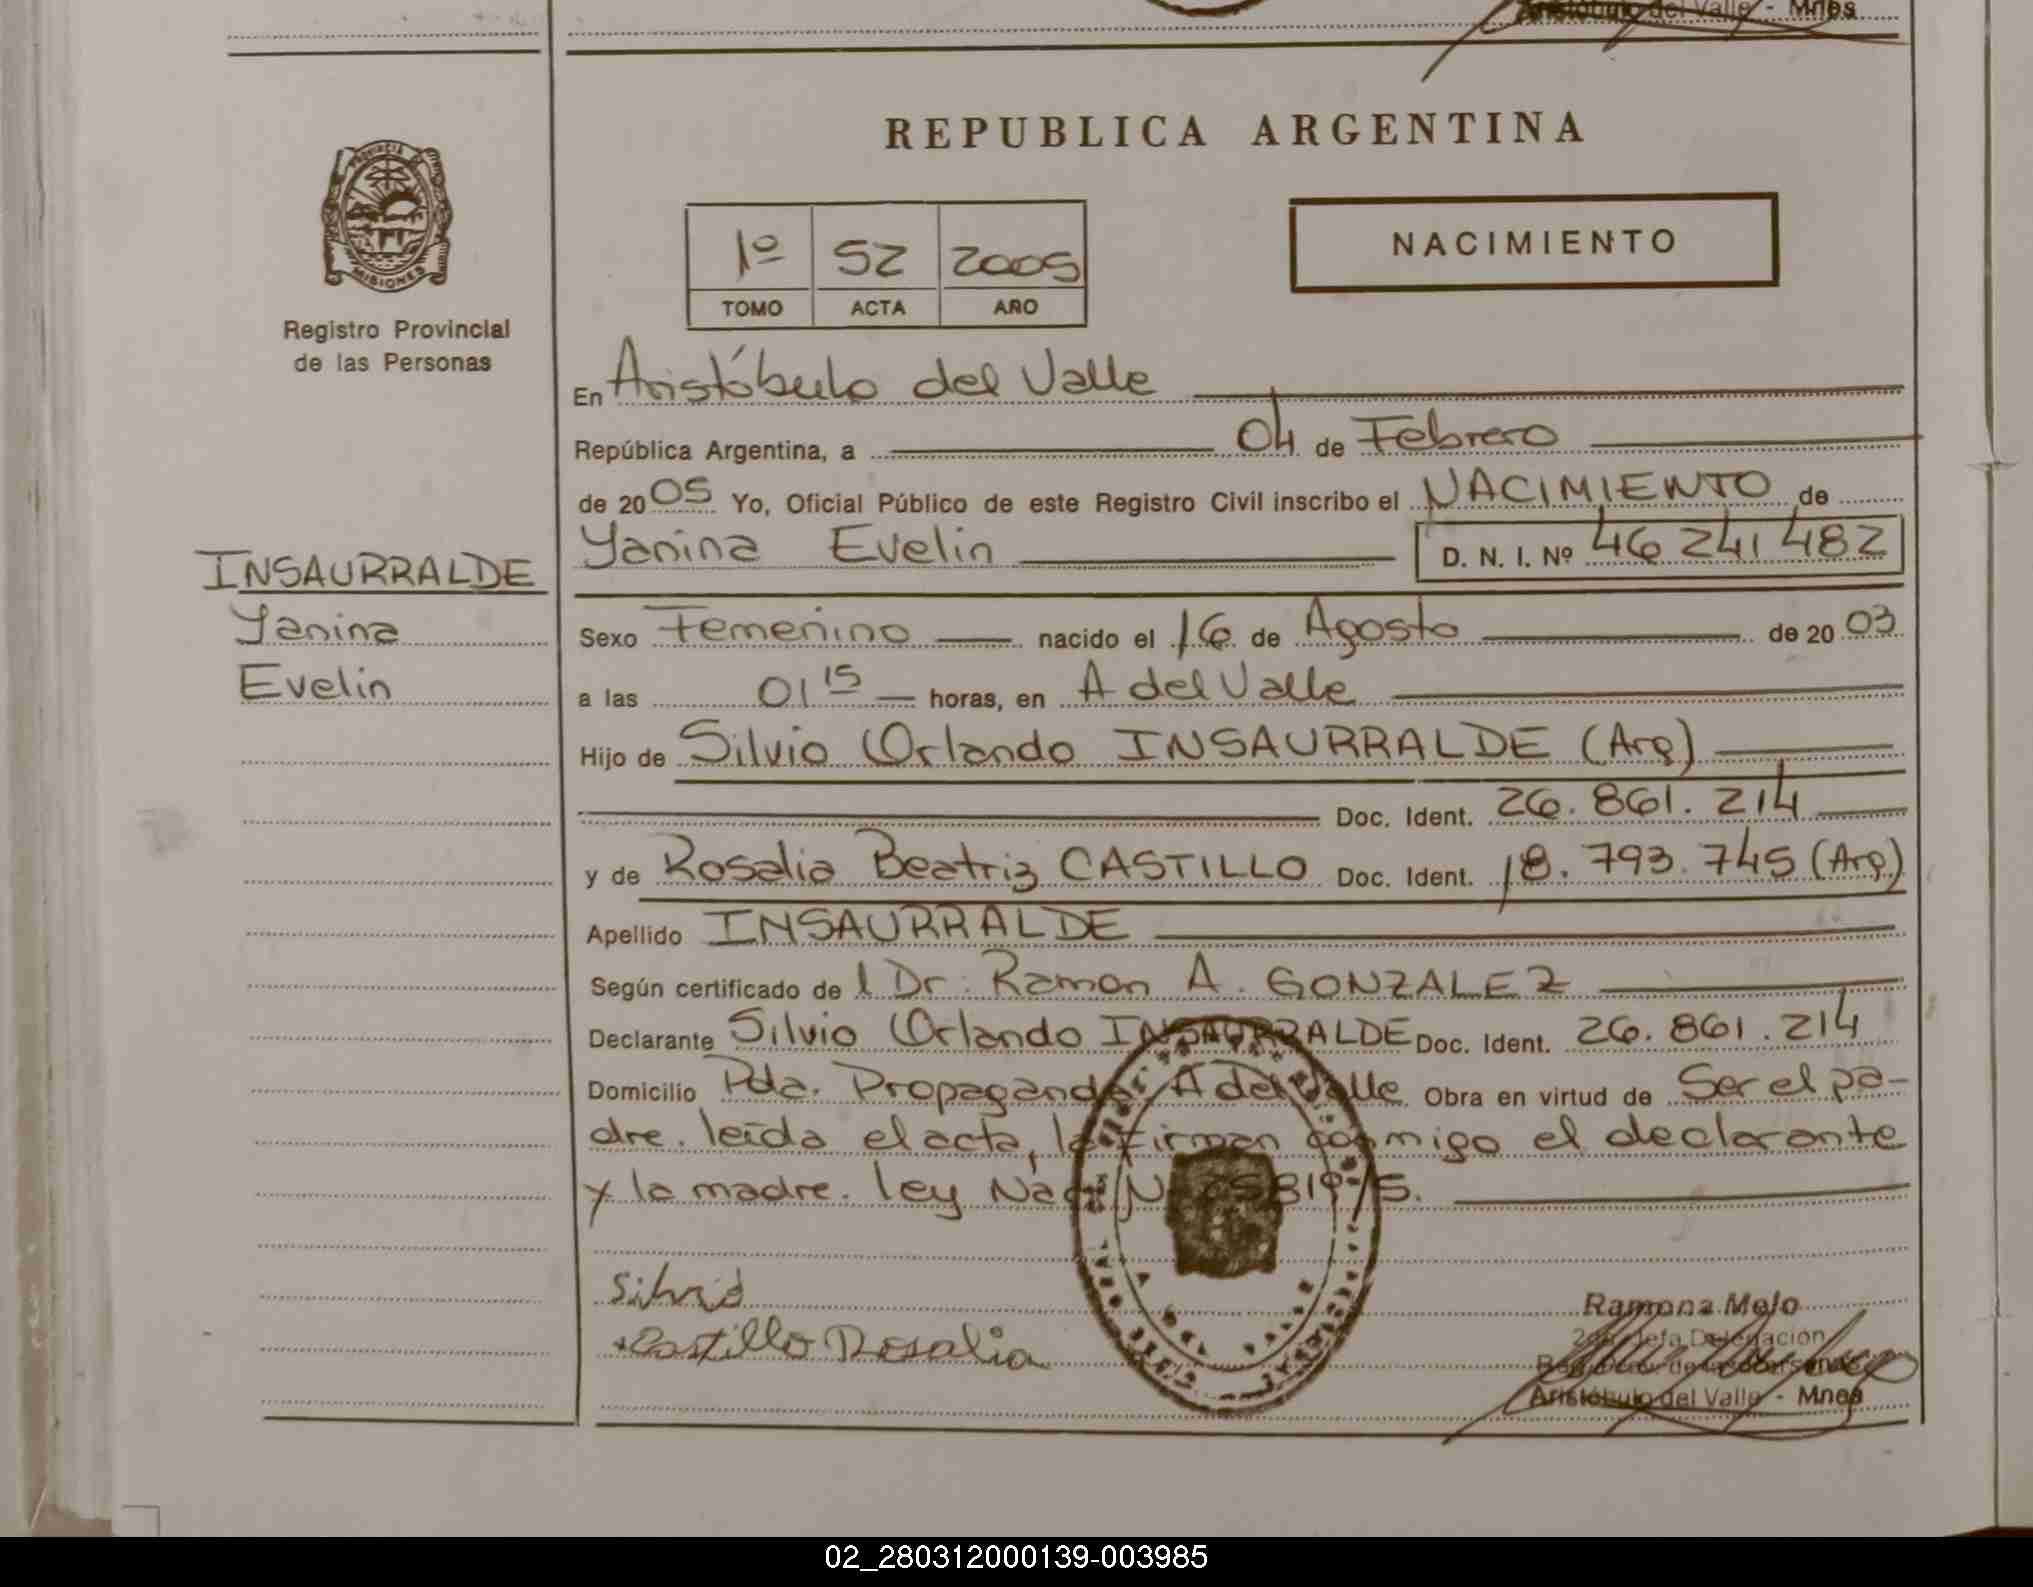 Aristóbulo del Valle - Mnes
REPUBLICA ARGENTINA
PROVINCIA DE
MISIONES
Registro Provincial
de las Personas
1º 52 2005
TOMO ACTA AÑO
NACIMIENTO
En Aristóbulo del Valle
República Argentina, a 04 de Febrero
de 2005 Yo, Oficial Público de este Registro Civil inscribo el NACIMIENTO de
Yanina Evelin D. N. I. Nº 46 241 482
INSAURRALDE
Yanina
Evelin
Sexo Femenino nacido el 16 de Agosto de 2003
a las 01 15 horas, en A del Valle
Hijo de Silvio Orlando INSAURRALDE (Arg)
Doc. Ident. 26.861.214
y de Rosalia Beatriz CASTILLO Doc. Ident. 18.793.745 (Arg)
Apellido INSAURRALDE
Según certificado de l Dr. Ramon A. GONZALEZ
Declarante Silvio Orlando INSAURRALDE Doc. Ident. 26.861.214
Domicilio Pda. Propaganda. A del Valle Obra en virtud de Ser el pa-
dre. leída el acta, la firman conmigo el declarante
y la madre. ley Nac. Nº 25819/5.
Silvio
Castillo Rosalia
Ramona Melo
Jefa Delegación
Aristóbulo del Valle - Mnes
02_280312000139-003985